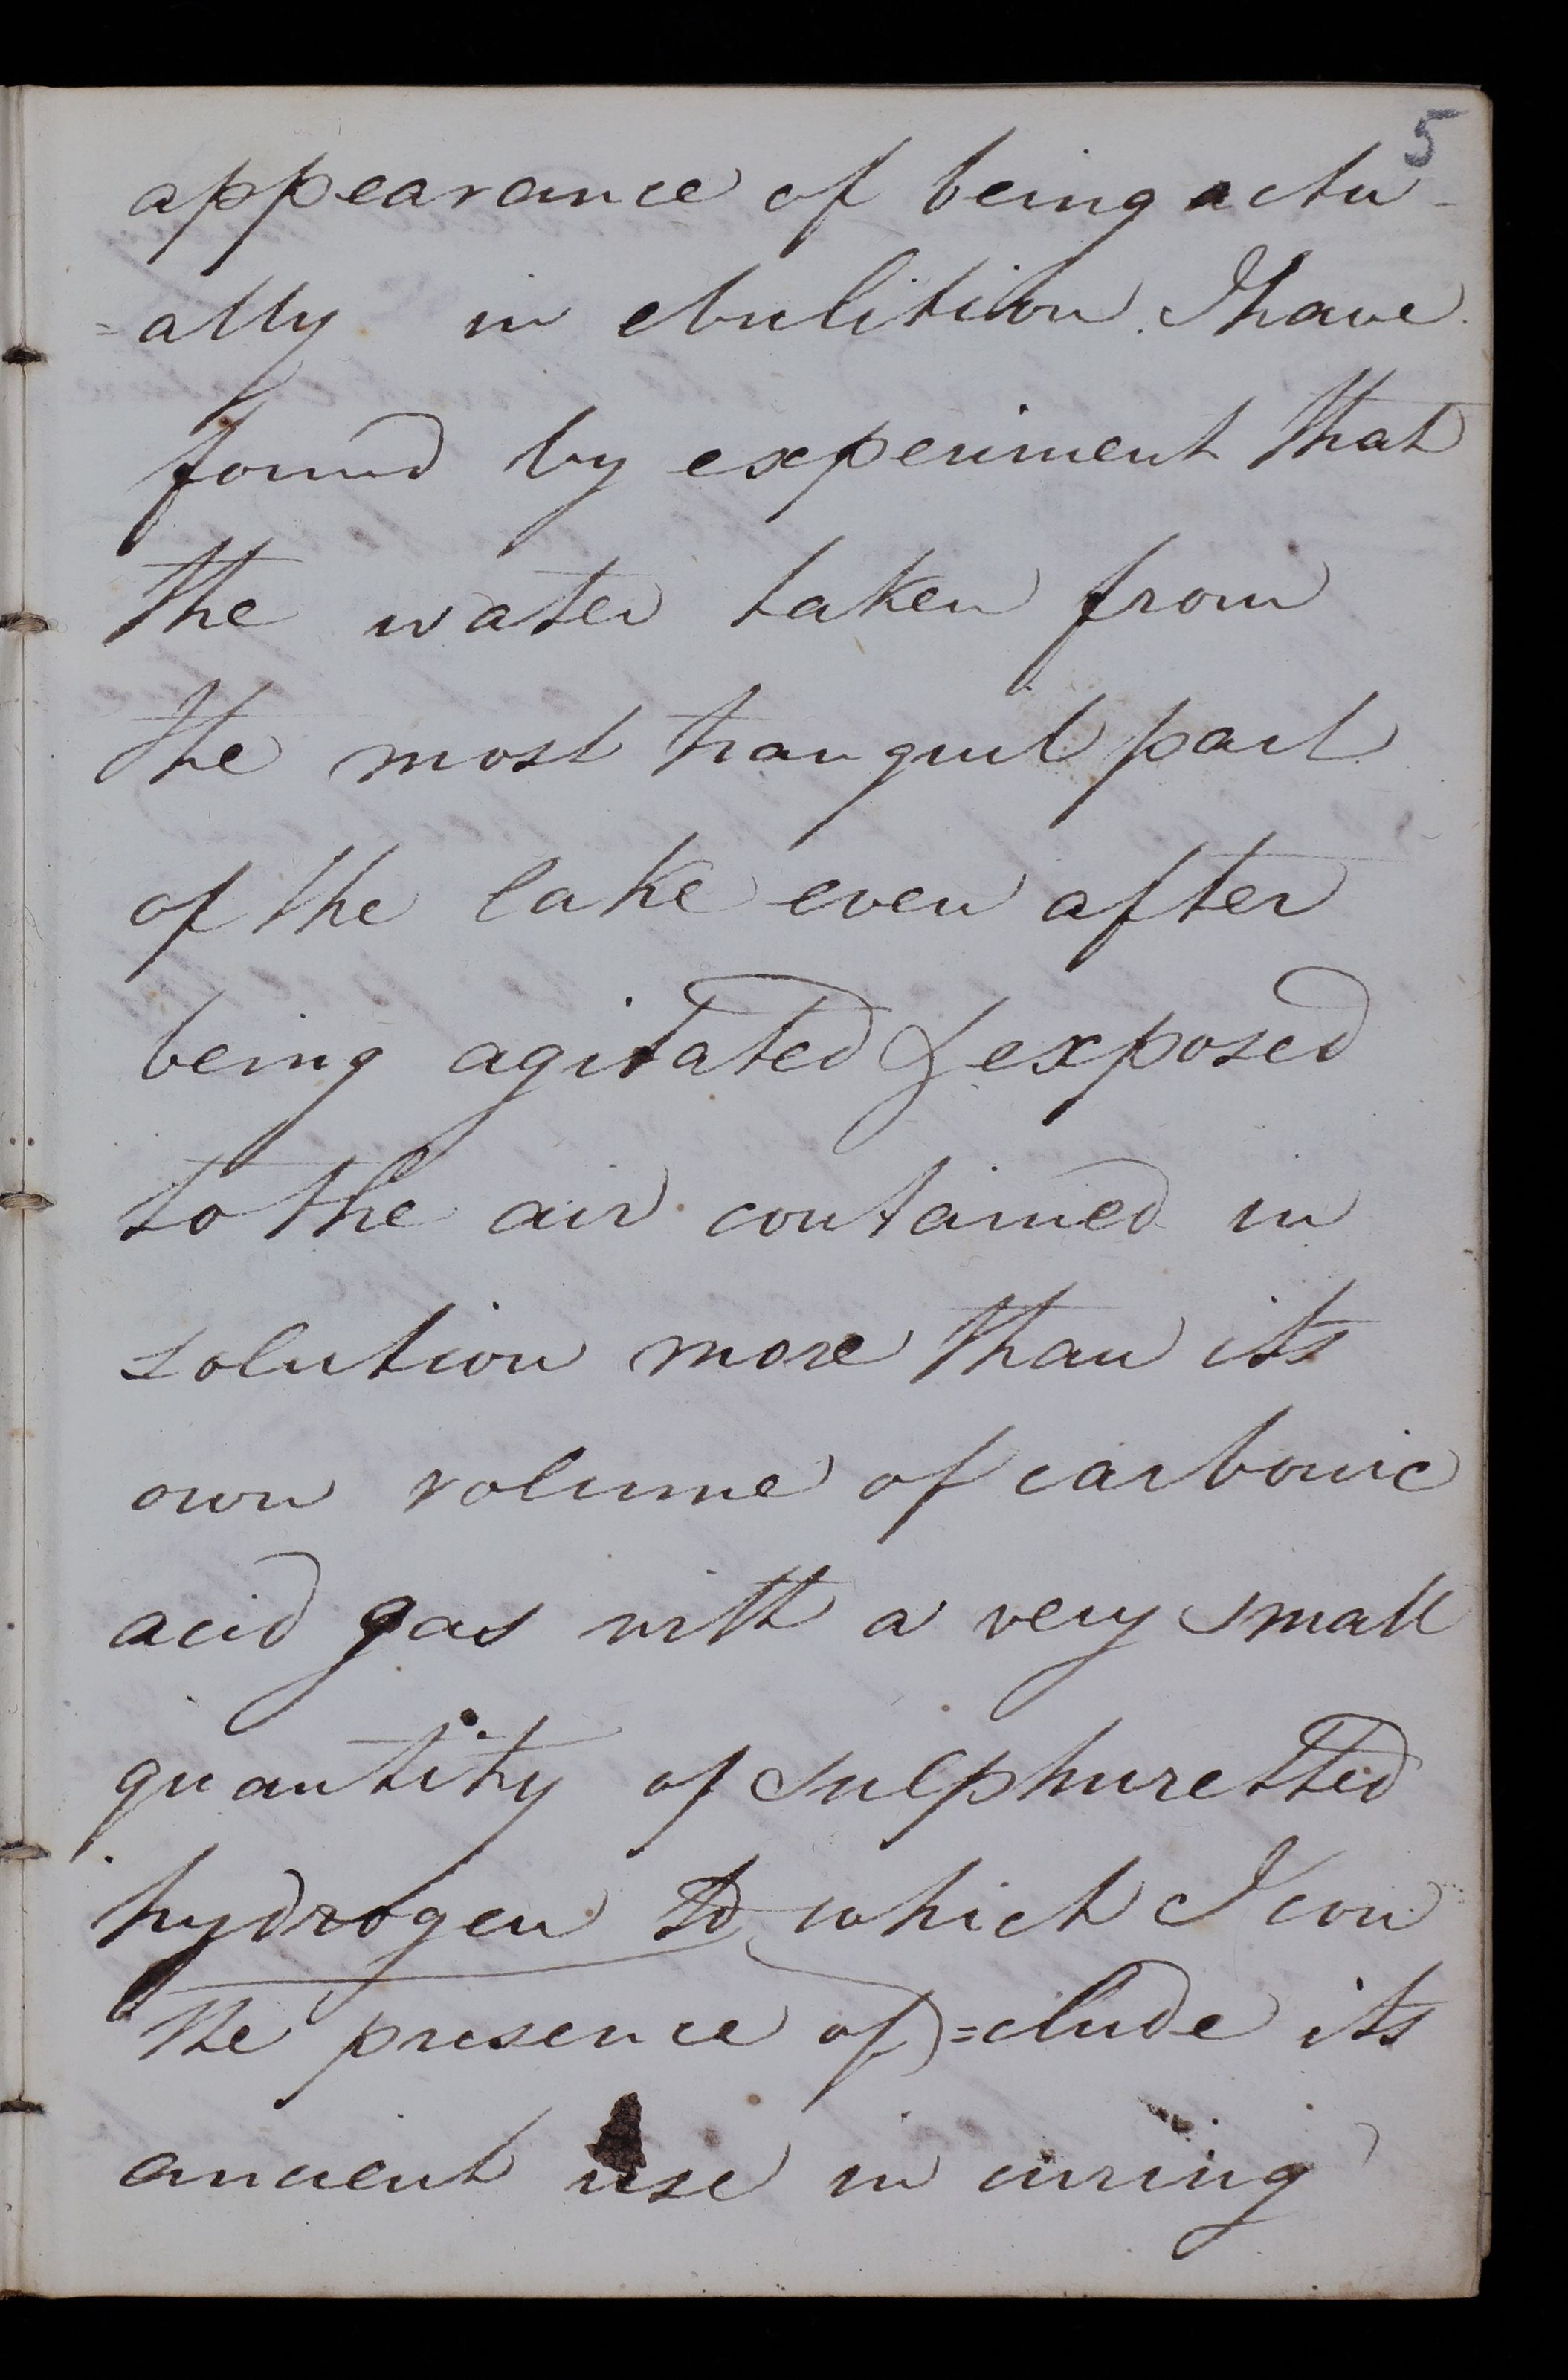 5
appearance of being actu-
=ally in ebulition. I have
found by experiment that
the water taken from
the most tranquil part
of the lake even after
being agitated & exposed
to the air contained in
solution more than its
own volume of carbonic
acid gas with a very small
quantity of sulphuretted
hydrogen to which I con
the presence of) =clude its
ancient use in curing